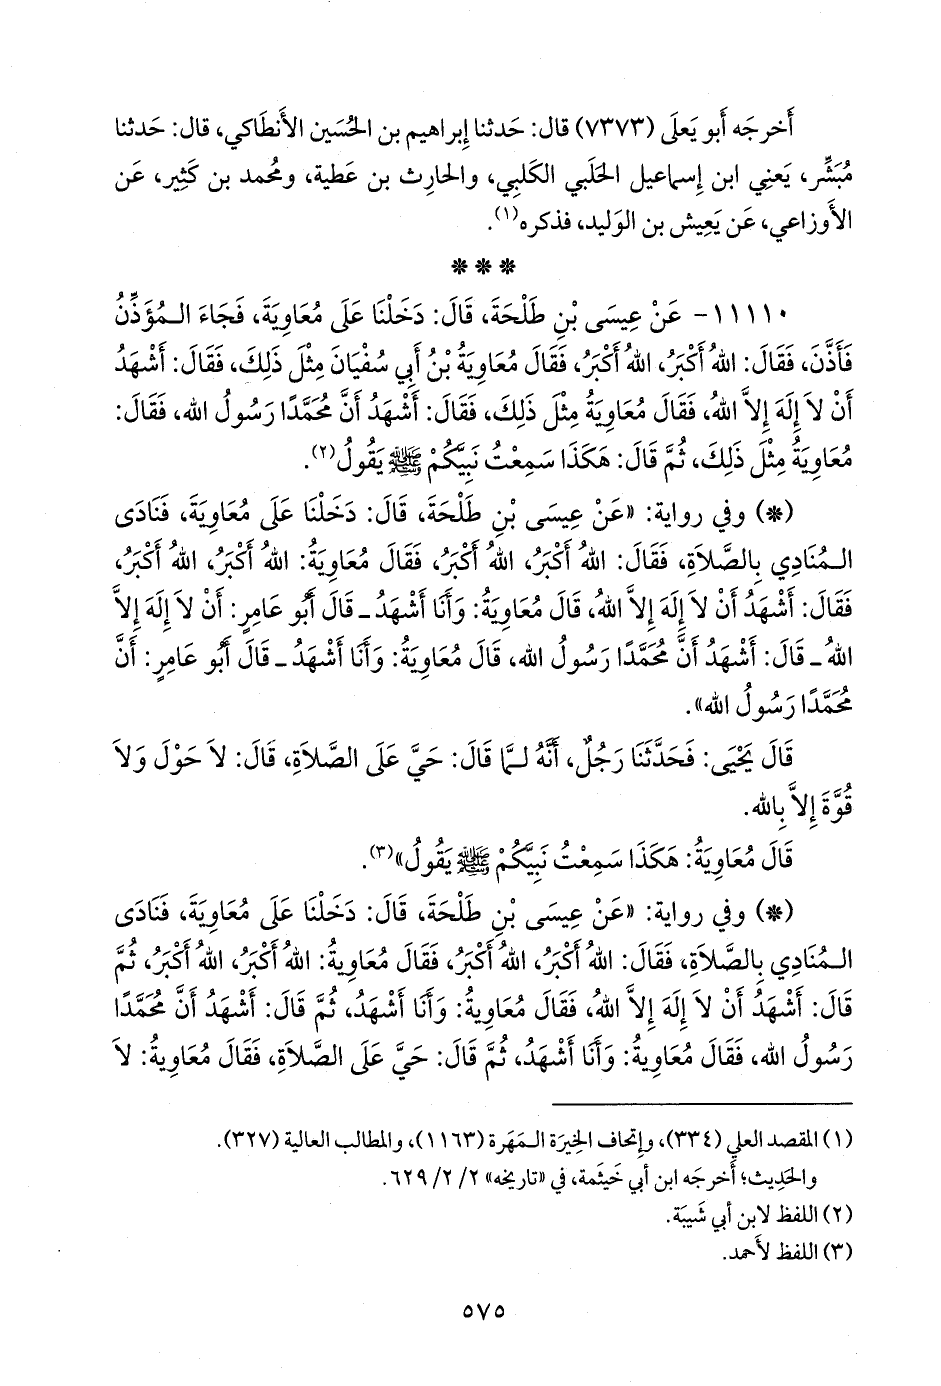 أَخرجَه أَبو يَعلَى (٧٣٧٣) قال: حَدثنا إِبراهيم بن الحُسَين الأَنطَاكي، قال: حَدثنا
مُبَشِّر، يَعنِي ابن إِسماعيل الحَلَبي الكَلبِي، والحارِث بن عَطية، ومُحمد بن كَثِير، عَن
الأَوزاعي، عَن يَعِيش بن الوَليد، فذكره(١).
***
١١١١٠- عَنْ عِيسَى بْنِ طَلْحَةَ، قَالَ: دَخَلْنَا عَلَى مُعَاوِيَةَ، فَجَاءَ الـمُؤَذِّنُ
فَأَذَّنَ، فَقَالَ: اللهُ أَكْبَرُ، اللهُ أَكْبَرُ، فَقَالَ مُعَاوِيَةُ بْنُ أَبِي سُفْيَانَ مِثْلَ ذَلِكَ، فَقَالَ: أَشْهَدُ
أَنْ لاَ إِلَهَ إِلاَّ اللهُ، فَقَالَ مُعَاوِيَةُ مِثْلَ ذَلِكَ، فَقَالَ: أَشْهَدُ أَنَّ مُحَمَّدًا رَسُولُ الله، فَقَالَ:
مُعَاوِيَةُ مِثْلَ ذَلِكَ، ثُمَّ قَالَ: هَكَذَا سَمِعْتُ نَبِيَّكُمْ ﷺ يَقُولُ(٢).
(*) وفي رواية: «عَنْ عِيسَى بْنِ طَلْحَةَ، قَالَ: دَخَلْنَا عَلَى مُعَاوِيَةَ، فَنَادَى
الـمُنَادِي بِالصَّلاَةِ، فَقَالَ: اللهُ أَكْبَرُ، اللهُ أَكْبَرُ، فَقَالَ مُعَاوِيَةُ: اللهُ أَكْبَرُ، اللهُ أَكْبَرُ،
فَقَالَ: أَشْهَدُ أَنْ لاَ إِلَهَ إِلاَّ اللهُ، قَالَ مُعَاوِيَةُ: وَأَنَا أَشْهَدُ ـ قَالَ أَبُو عَامِرٍ: أَنْ لاَ إِلَهَ إِلاَّ
اللهُ ـ قَالَ: أَشْهَدُ أَنَّ مُحَمَّدًا رَسُولُ الله، قَالَ مُعَاوِيَةُ: وَأَنَا أَشْهَدُ ـ قَالَ أَبُو عَامِرٍ: أَنَّ
مُحَمَّدًا رَسُولُ الله».
قَالَ يَحْيَى: فَحَدَّثَنَا رَجُلٌ، أَنَّهُ لـمَّا قَالَ: حَيَّ عَلَى الصَّلاَةِ، قَالَ: لاَ حَوْلَ وَلاَ
قُوَّةَ إِلاَّ بِالله.
قَالَ مُعَاوِيَةُ: هَكَذَا سَمِعْتُ نَبِيَّكُمْ ﷺ يَقُولُ»(٣).
(*) وفي رواية: «عَنْ عِيسَى بْنِ طَلْحَةَ، قَالَ: دَخَلْنَا عَلَى مُعَاوِيَةَ، فَنَادَى
الـمُنَادِي بِالصَّلاَةِ، فَقَالَ: اللهُ أَكْبَرُ، اللهُ أَكْبَرُ، فَقَالَ مُعَاوِيةُ: اللهُ أَكْبَرُ، اللهُ أَكْبَرُ، ثُمَّ
قَالَ: أَشْهَدُ أَنْ لاَ إِلَهَ إِلاَّ اللهُ، فَقَالَ مُعَاوِيةُ: وَأَنَا أَشْهَدُ، ثُمَّ قَالَ: أَشْهَدُ أَنَّ مُحَمَّدًا
رَسُولُ الله، فَقَالَ مُعَاوِيةُ: وَأَنَا أَشْهَدُ، ثُمَّ قَالَ: حَيَّ عَلَى الصَّلاَةِ، فَقَالَ مُعَاوِيةُ: لاَ
(١) المقصد العلي (٣٣٤)، وإِتحاف الخِيرَة الـمَهَرة (١١٦٣)، والمطالب العالية (٣٢٧).
والحَدِيث؛ أَخرجَه ابن أبي خَيثَمة، في «تاريخه» ٢/ ٢/ ٦٢٩.
(٢) اللفظ لابن أبي شَيبَة.
(٣) اللفظ لأَحمد.
٥٧٥